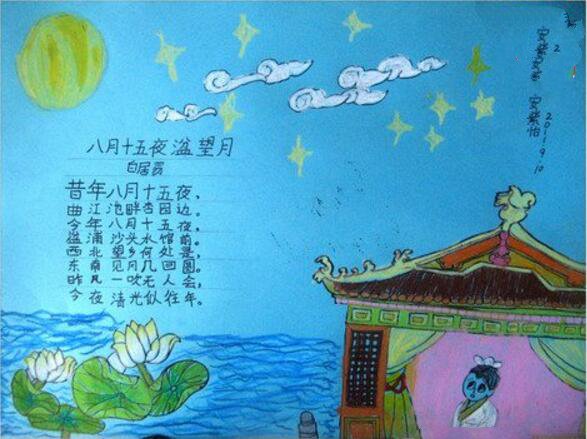 八月十五夜湓望月
白居易
昔年八月十五夜,
曲江池畔杏园边。
今年八月十五夜,
湓浦沙头水馆前。
西北望乡何处是,
东南见月几回圆。
昨风一吹无人会,
今夜清光似往年。
安紫怡